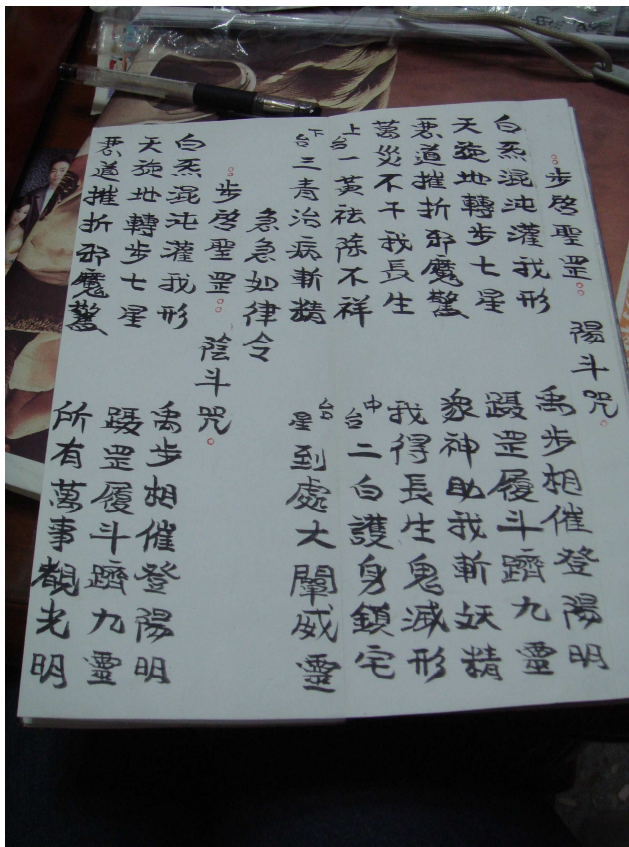 步啓聖罡 陽斗咒
白炁混沌灌我形 禹步相催登陽明
天旋地轉步七星 躡罡履斗躋九靈
惡道摧折邪魔驚 眾神助我斬妖精
萬災不干我長生 我得長生鬼滅形
上台一黃祛除不祥 中台二白護身鎮宅
下台三青治病斬精 台星到處大闡威靈
急急如律令
步啓聖罡 陰斗咒
白炁混沌灌我形 禹步相催登陽明
天旋地轉步七星 躡罡履斗躋九靈
惡道摧折邪魔驚 所有萬事覩光明